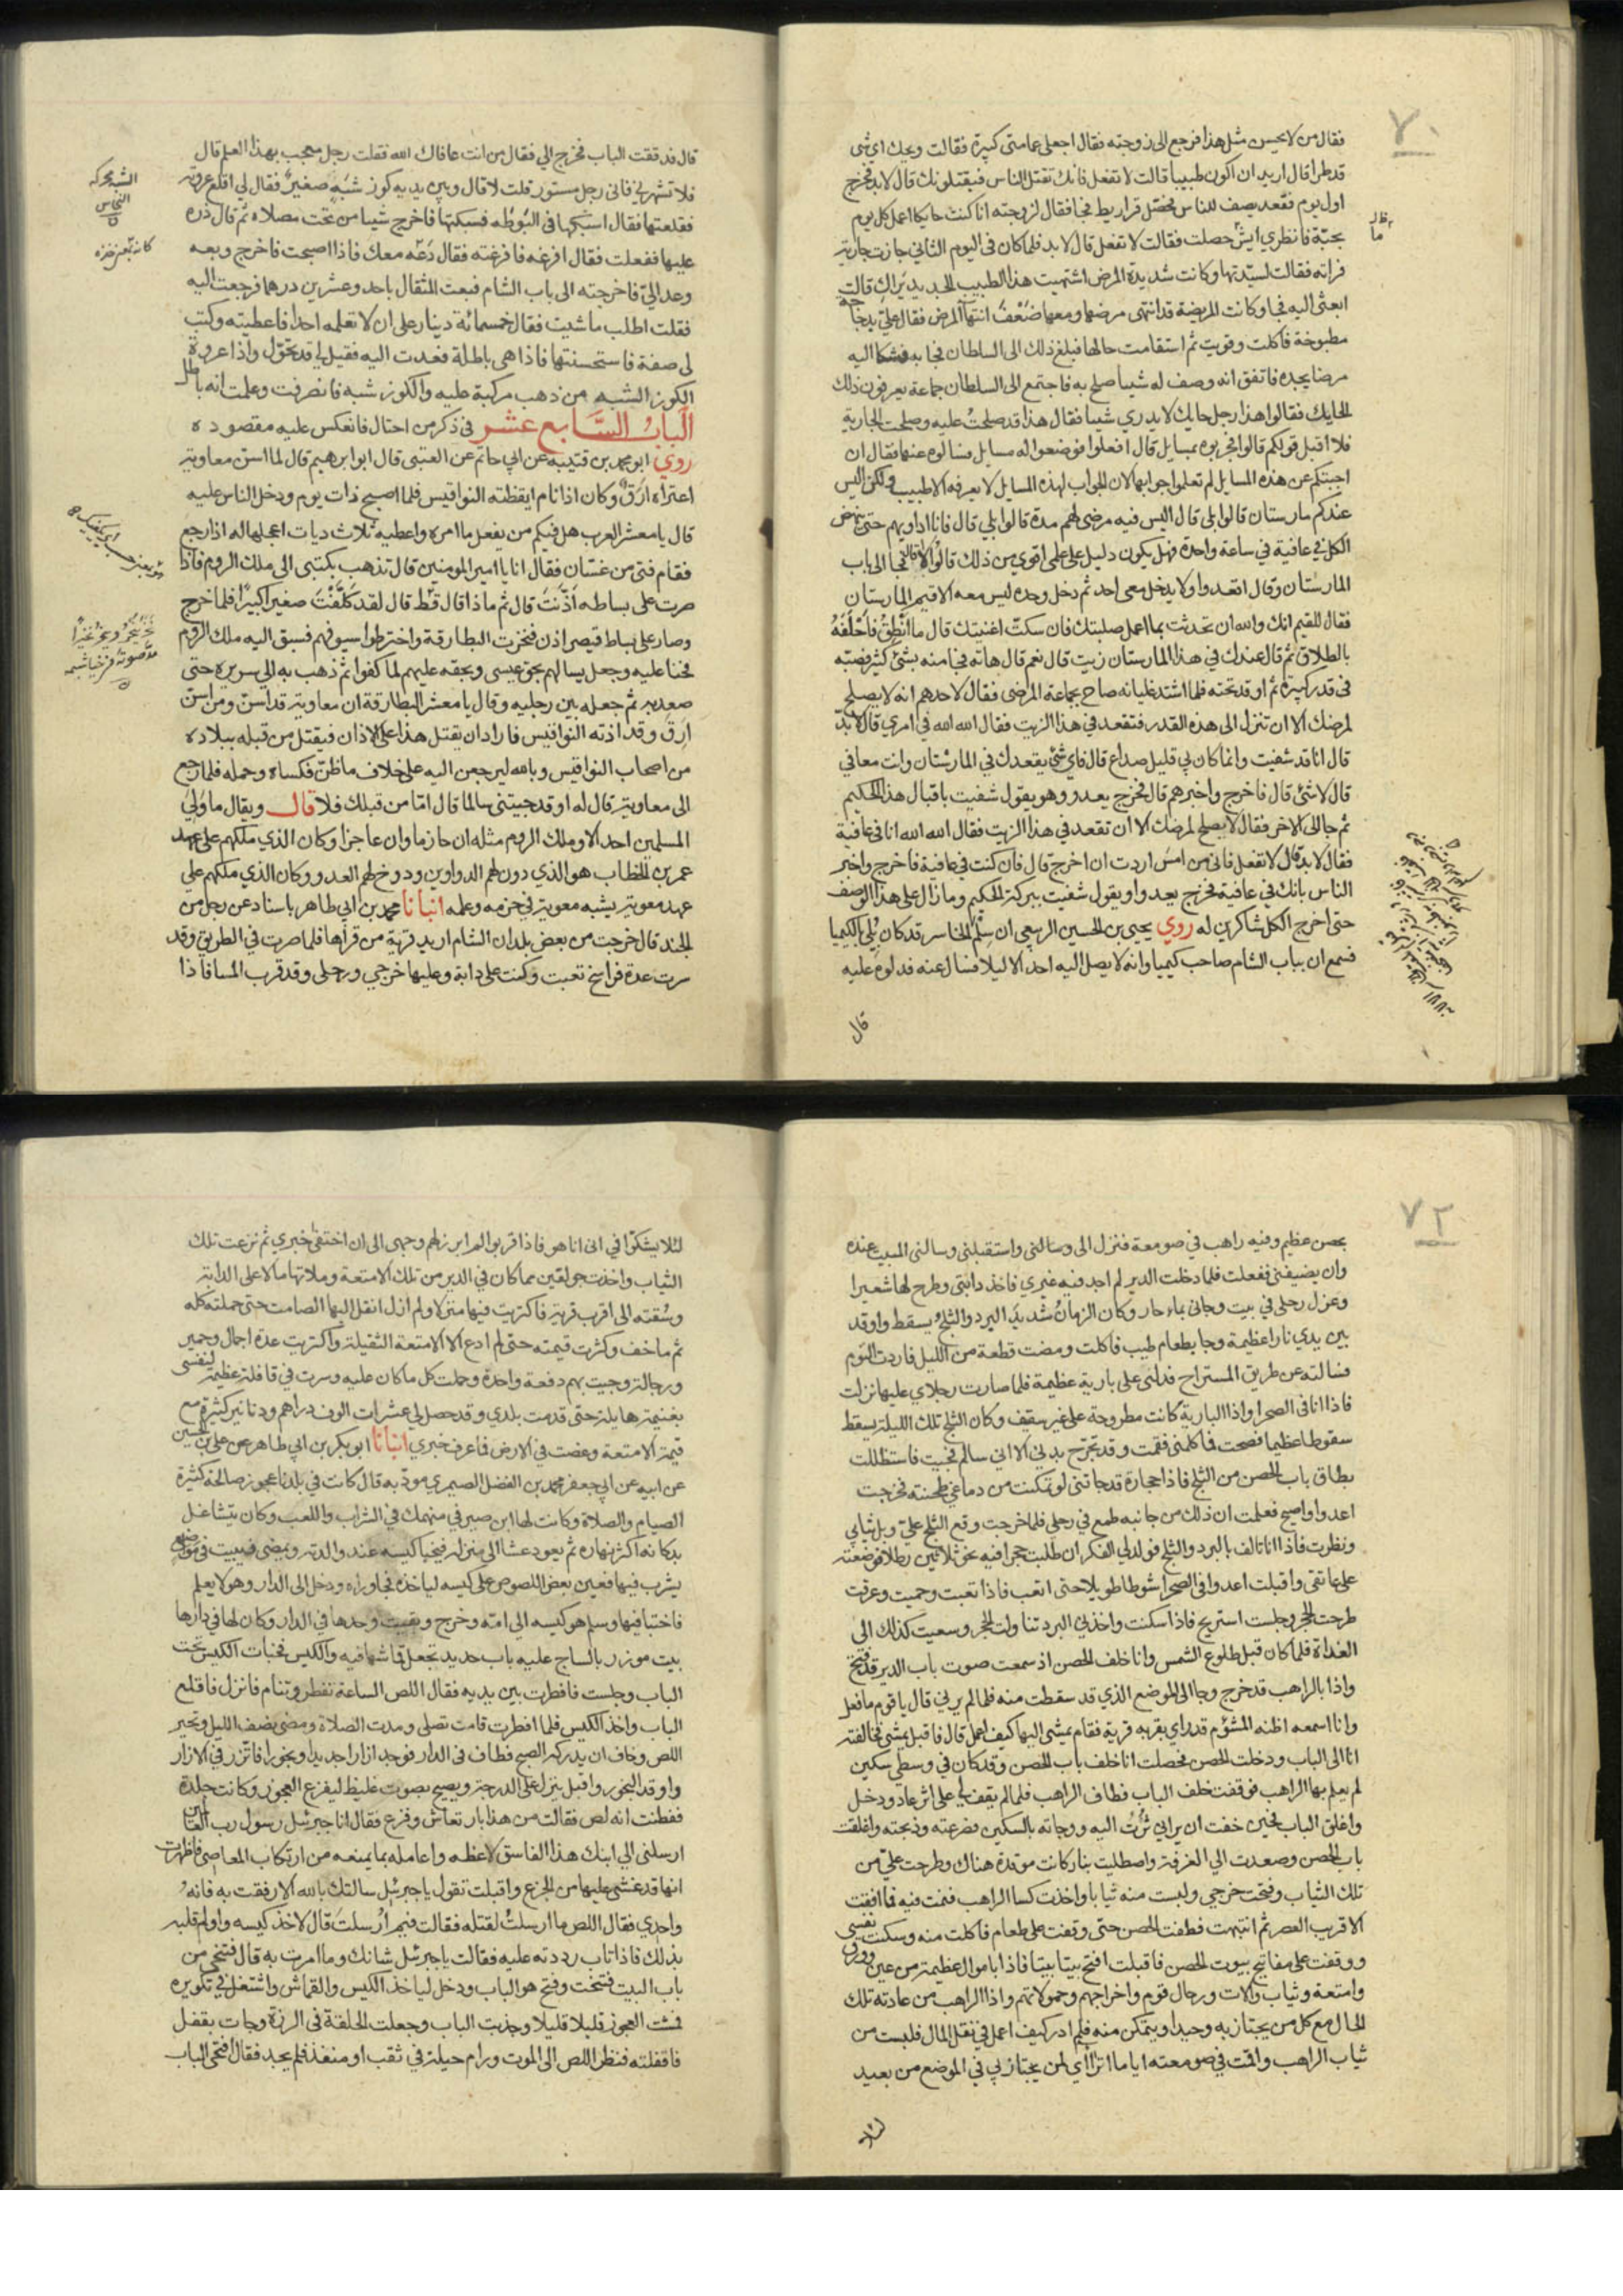 ٧٠
فقال من لا يحسن مثل هذا فرجع الى زوجته فقال اجعلى عمامتى كبيرة فقالت ويحك اى شى
قد طرا قال اريد ان اكون طبيبا قالت لا تفعل فانك تقتل الناس فيقتلونك قال لا بد فخرج
اول يوم فقعد يصف للناس فحصّل قراريط فجا فقال لزوجته انا كنت حايكا اعمل كل يوم
بحبّة فانظري ايش حصلت فقالت لا تفعل قال لا بد فلما كان فى اليوم الثانى جازت جارية
فراته فقالت لسيّدتها وكانت شديدة المرض اشتهيت هذا الطبيب الجديد يَراكِ قالت
ابعثى اليه فجا وكانت المريضة قد انتهى مرضها ومعها ضُعْفُ انتهآ المرض فقال علىّ بدجاجة
مطبوخة فاكلت وقويت ثم استقامت حالها فبلغ ذلك الى السلطان فجا به فشكا اليه
مرضا يجده فاتفق انه وصف له شيا صلح به فاجتمع الى السلطان جماعة يعرفون ذلك
الحايك فقالوا هذا رجل حايك لا يدري شييا فقال هذا قد صلحتُ عليه وصلحت الجارية
فلا اقبل قولكم قالوا فنجربوه بمسايل قال افعلوا فوضعوا له مسايل فسالوه عنها فقال ان
اجبتكم عن هذه المسايل لم تعلموا جوابها لان الجواب لهذه المسايل لا يعرفه الا طبيب ولكن اليس
عندكم مارستان قالوا بلى قال اليس فيه مرضى لهم مدة قالوا بلي قال فانا اداويهم حتى ينهض
الكل فى عافية في ساعة واحدة فهل يكون دليل على علمى اقوي من ذلك قالوا لا قال فجا الى باب
المارستان وقال اقعدوا ولا يدخل معى احد ثم دخل وحده ليس معه الا قيم المارستان
فقال للقيم انك والله ان تحدثت بما اعمل صلبتك فان سكتّ اغنيتك قال ما انْطِقُ فاحْلَفَهُ
بالطلاق ثم قال عندك في هذا المارستان زيت قال نعم قال هاته فجا منه بشئ كثير فصبّه
فى قدر كبيرة ثم اوقد تحته فلما اشتد غليانه صاح بجماعة المرضى فقال لاحدهم انه لا يصلح
لمرضك الا ان تنزل الى هذه القدر فتقعد في هذا الزيت فقال الله الله في امري قال لا بدّ
قال انا قد شفيت وانما كان بى قليل صداع قال فاى شئ يقعدك في المارستان وانت معافي
قال لا شئ قال فاخرج واخبرهم قال فخرج يعدو وهو يقول شفيت باقبال هذا الحكيم
ثم جا الى الاخر فقال لا يصلح لمرضك الا ان تقعد في هذا الزيت فقال الله الله انا فى عافية
فقال لا بد قال لا تفعل فانى من امس اردت ان اخرج قال فان كنت في عافية فاخرج واخبر
الناس بانك في عافية فخرج يعدوا ويقول شفيت ببركة الحكيم وما زال على هذا الوصف
حتى اخرج الكل شاكرين له روي يحيى بن الحسين الربعى ان سلم الخاسر قد كان بُلي بالكيميا
فسمع ان بباب الشام صاحب كيميا وانه لا يصل اليه احد الا ليلا فسال عنه فدلوه عليه
قال
قال فدققت الباب فخرج الي فقال من انت عافاك الله فقلت رجل معجب بهذا العلم قال
فلا تشهرنى فانى رجل مستور قلت لا قال وبين يديه كوز شبَهٍ صغيرٌ فقال لى اقلع عروته
فقلعتها فقال اسبكها فى البُوطه فسبكتها فاخرج شيا من تحت مصلاه ثم قال ذره
عليها ففعلت فقال افرغه فافرغته فقال دَعْه معك فاذا اصبحت فاخرج وبعه
وعد اليّ فاخرجته الى باب الشام فبعت المثقال باحد وعشرين درهما فرجعت اليه
فقلت اطلب ما شيت فقال خمسمائة دينار على ان لا تعلمه احدا فاعطيته وكتب
لى صفة فاستحسنتها فاذا هى باطلة فعدت اليه فقيل لي قد تحوّل واذا عروة
الكوز الشبه من ذهب مركبة عليه والكوز شبه فانصرفت وعلمت انه باطل
الباب السَّابع عشر فى ذكر من احتال فانعكس عليه مقصوده
روي ابو محمد بن قتيبة عن ابي حاتم عن العتبى قال ابو ابرهيم قال لما اسن معاوية
اعتراه ارَقٌ وكان اذا نام ايقظته النواقيس فلما اصبح ذات يوم ودخل الناس عليه
قال يا معشر العرب هل فيكم من يفعل ما امره واعطيه ثلاث ديات اعجلها له اذا رجع
فقام فتى من غسّان فقال انا يا امير المومنين قال تذهب بكتبى الى ملك الروم فاذا
صرت على بساطه اذّنتَ قال ثم ماذا قال قط قال لقد كَلّفْتَ صغيرا كبيرًا فلما خرج
وصار على بساط قيصر اذن فنخرت البطارقة واخترطوا سيوفهم فسبق اليه ملك الروم
فحنا عليه وجعل يسالهم بحق عيسى وبحقه عليهم لما كفوا ثم ذهب به الى سريره حتى
صعد به ثم جعله بين رجليه وقال يا معشر البطارقة ان معاوية قد اسن ومن اسن
ارِق وقد اذته النواقيس فاراد ان يقتل هذا على الاذان فيقتل من قبله ببلاده
من اصحاب النواقيس وبالله ليرجعن اليه على خلاف ما ظنّ فكساه وحمله فلما رجع
الى معاوية قال له او قد جيتنى سالما قال امّا من قبلك فلا قال ويقال ما وَلى
المسلمين احد الا وملك الروم مثله ان حازما وان عاجزا وكان الذي ملكهم على عهد
عمر بن الخطاب هو الذي دون لهم الدواوين ودوخ لهم العدو وكان الذي ملكهم علي
عهد معوية يشبه معوية في حزمه وعمله انبانا محمد بن ابي طاهر باسناد عن رجل من
الجند قال خرجت من بعض بلدان الشام اريد قرية من قراها فلما صرت في الطريق وقد
سرت عدة فراسخ تعبت وكنت على دابة وعليها خرجي ورحلى وقد قرب المسا فاذا
الشبه محركه
النحاس
٧٢
بحصن عظيم وفيه راهب في صومعة فنزل الى وسالنى واستقبلنى وسالنى المبيت عنده
وان يضيفنى ففعلت فلما دخلت الدير لم اجد فيه غيري فاخذ دابتى وطرح لها شعيرا
وعزل رحلى في بيت وجانى بماء حار وكان الزمانُ شديدَ البرد والثلجُ يسقط واوقد
بين يدي نارا عظيمة وجا بطعام طيب فاكلت ومضت قطعة من الليل فاردت النوم
فسالته عن طريق المستراح فدلنى على بارية عظيمة فلما صارت رجلاي عليها نزلت
فاذا انا فى الصحرا واذا البارية كانت مطروحة على غير سقيف وكان الثلج تلك الليلة يسقط
سقوطا عظيما فصحت فما كلمنى فقمت وقد تجرّح بدني الا انى سالم فجيت فاستظللت
بطاق باب الحصن من الثلج فاذا حجارة قد جاتنى لو تمكنت من دماغي طحنته فخرجت
اعدوا واصيح فعلمت ان ذلك من جانبه طمع في رحلى فلما خرجت وقع الثلج علىّ وبل ثيابي
ونظرت فاذا انا تالف بالبرد والثلج فولد لي الفكر ان طلبت حجرا فيه نحو ثلاثين رطلا فوضعته
على عاتقى واقبلت اعدوا في الصحرا شوطا طويلا حتى اتعب فاذا تعبت وحميت وعرقت
طرحت الحجر وجلست استريح فاذا سكنت واخذني البرد تناولت الحجر وسعيت كذلك الى
الغداة فلما كان قبل طلوع الشمس وانا خلف الحصن اذ سمعت صوت باب الدير قد فتح
واذا بالراهب قد خرج وجا الى الموضع الذي قد سقطت منه فلما لم يرني قال يا قوم ما فعل
وانا اسمعه اظنه المشؤم قدر اي بقربه قرية فقام يمشى اليها كيف اعمل قال فاقبل يمشى فخالفته
انا الى الباب ودخلت الحصن فحصلت انا خلف باب الحصن وقد كان في وسطى سكين
لم يعلم بها الراهب فوقفت خلف الباب فطاف الراهب فلما لم يقف لى على اثر عاد ودخل
واغلق الباب فحين خفت ان يراني ثُرْتُ اليه ووجاته بالسكين فصرعته وذبحته واغلقت
باب الحصن وصعدت الي الغرفة واصطليت بنار كانت موقدة هناك وطرحت علىّ من
تلك الثياب وفتحت خرجي ولبست منه ثيابا واخذت كسا الراهب فنمت فيه فما افقت
الا قرب العصر ثم انتبهت فطفت الحصن حتى وقفت على طعام فاكلت منه وسكنت نفسى
ووقفت على مفاتيح بيوت الحصن فاقبلت افتح بيتا بيتا فاذا باموال عظيمة من عين وورق
وامتعة وثياب والات ورحال قوم واخراجهم وحمولاتهم واذا الراهب من عادته تلك
الحال مع كل من يجتاز به وحيدا ويتمكن منه فلم ادر كيف اعمل في نقل المال فلبست من
ثياب الراهب واقمت في صومعته اياما اترااي لمن يجتاز بي في الموضع من بعيد
لئلا
لئلا يشكّوا في انى انا هو فاذا قربوا لم ابرز لهم وجهى الى ان اختفى خبري ثم نزعت تلك
الثياب واخذت جولقين مما كان في الدير من تلك الامتعة وملاتها مالا على الدابة
وسُقته الى اقرب قرية فاكتريت فيها منزلا ولم ازل انقل اليها الصامت حتى حملته كله
ثم ما خف وكثرت قيمته حتى لم ادع الا الامتعة الثقيلة واكتريت عدة اجمال وحمير
ورجالة وجيت بهم دفعة واحدة وحملت كل ما كان عليه وسرت في قافلة عظيمة لنفسى
بغنيمة هايلة حتى قدمت بلدي وقد حصل لى عشرات الوف دراهم ودنانير كثيرة مع
قيمة الامتعة وغصت في الارض فما عرف خبري انبانا ابو بكر بن ابي طاهر عن على بن الحسين
عن ابيه عن ابي جعفر محمد بن الفضل الصيمري مودّبه قال كانت في بلدنا عجوز صالحة كثيرة
الصيام والصلاة وكانت لها ابن صيرفي منهمك في الشراب واللعب وكان يتشاغل
بدكانه اكثر نهاره ثم يعود عشا الى منزله فيخبا كيسه عند والدته ويمضى فيبيت في مواضع
يشرب فيها فعين بعض اللصوص على كيسه لياخذه فجا وراه ودخل الى الدار وهو لا يعلم
فاختبا فيها وسلم هو كيسه الي امه وخرج وبقيت وحدها في الدار وكان لها في دارها
بيت موزر بالساج عليه باب حديد تجعل قماشها فيه والكيس فخبات الكيس تحت
الباب وجلست فافطرت بين يديه فقال اللص الساعة تفطر وتنام فانزل فاقلع
الباب واخذ الكيس فلما افطرت قامت تصلى ومدت الصلاة ومضى نصف الليل وتحير
اللص وخاف ان يدركه الصبح فطاف فى الدار فوجد ازارا جديدا وبخورا فاتّزر في الازار
واوقد البخور واقبل ينزل على الدرجة ويصيح بصوت غليظ ليفزع العجوز وكانت جلدة
ففطنت انه لص فقالت من هذا بارتعاش وفزع فقال انا جبرئيل رسول رب العالمين
ارسلنى الي ابنك هذا الفاسق لاعظه واعامله بما يمنعه من ارتكاب المعاصى فاظهرت
انها قد غشى عليها من الجزع واقبلت تقول يا جبرئيل سالتك بالله الا رفقت به فانه
واحدي فقال اللص ما ارسلتُ لقتله فقالت فبمِ ارُسلتَ قال لاخذ كيسه واولم قلبه
بذلك فاذا تاب رددته عليه فقالت يا جبرئيل شانك وما امرت به قال فتنحى من
باب البيت فتنحت وفتح هو الباب ودخل لياخذ الكيس والقماش واشتغل في تكويره
فمشت العجوز قليلا قليلا وجذبت الباب وجعلت الحلقة في الرزة وجات بقفل
فاقفلته فنظر اللص الى الموت ورام حيلة في ثقب او منفذ فلم يجد فقال افتحى الباب